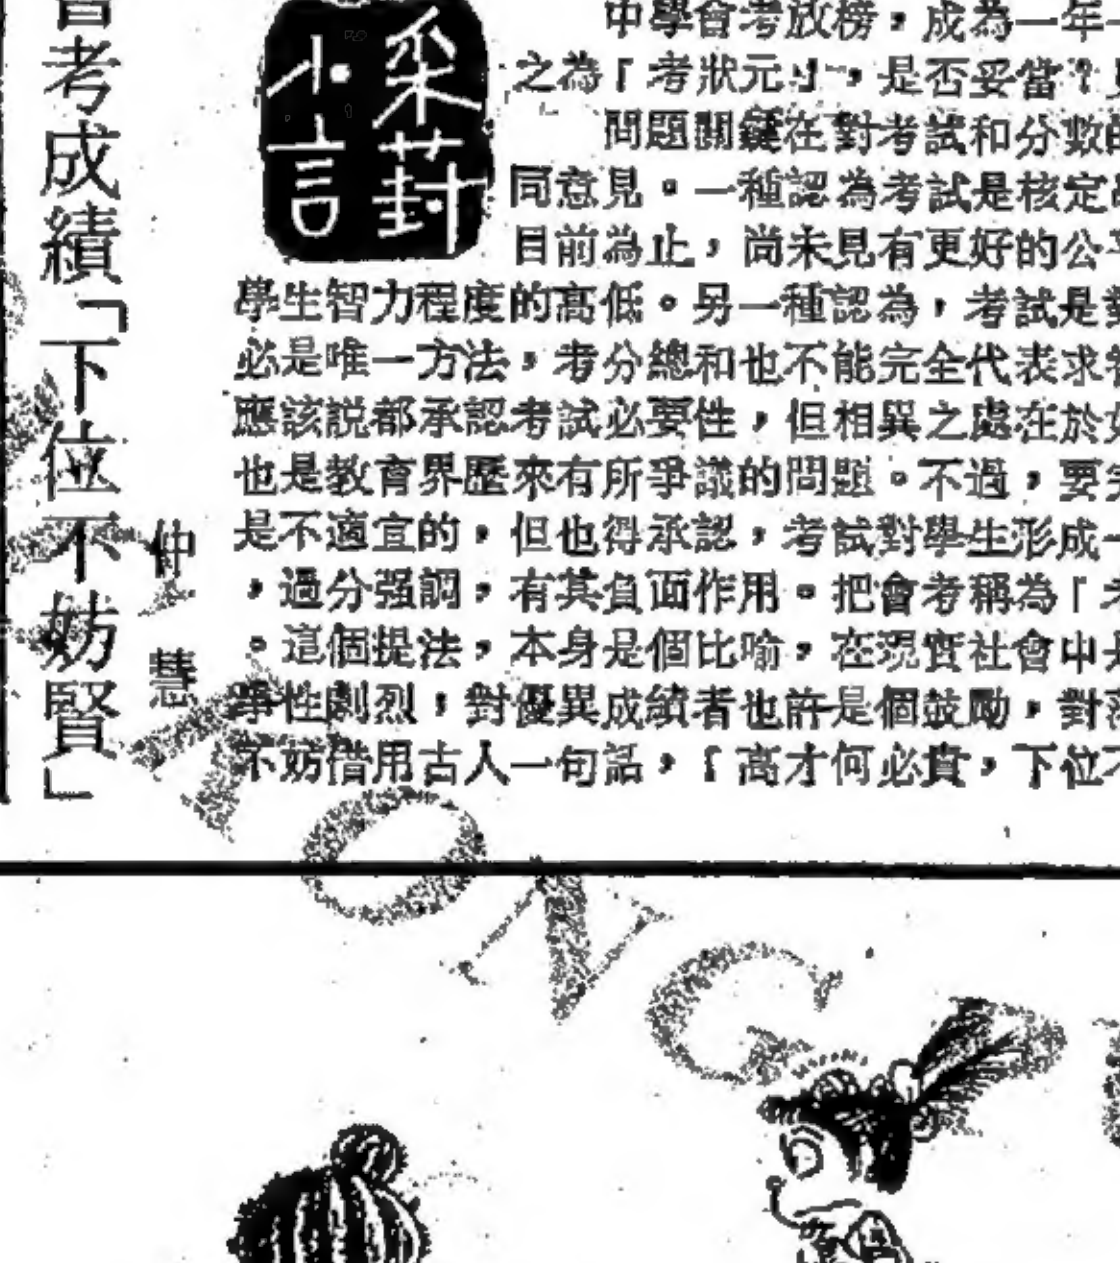 會考成績「下位不妨賢」
仲慧
采葑
小言
中學會考放榜，成為一年
之為「考狀元」，是否妥當？
問題關鍵在對考試和分數
同意見。一種認為考試是核定
目前為止，尚未見有更好的公
學生智力程度的高低。另一種認為，考試是
必是唯一方法，考分總和也不能完全代表求
應該說都承認考試必要性，但相異之處在於
也是教育界歷來有所爭議的問題。不過，要
是不適宜的，但也得承認，考試對學生形成一
，過分强調，有其負面作用。把會考稱為「
。這個提法，本身是個比喻，在現實社會中
爭性劇烈，對優異成績者也許是個鼓勵，對
不妨借用古人一句話，「高才何必貴，下位不